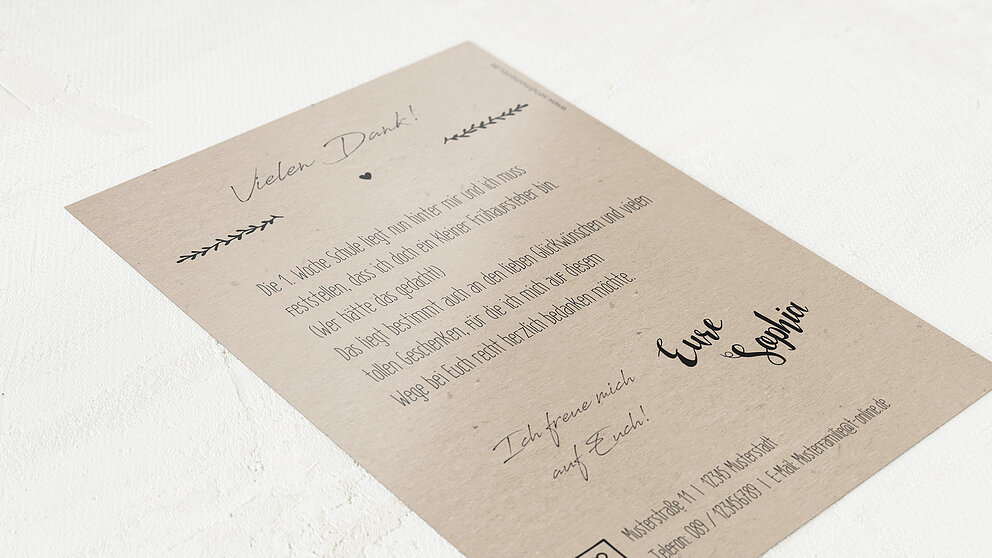 Vielen Dank!
Die 1. Woche Schule liegt nun hinter mir und ich muss
feststellen, dass ich doch ein kleiner Frühaufsteher bin.
(Wer hätte das gedacht!)
Das liegt bestimmt auch an den lieben Glückwünschen und vielen
tollen Geschenken, für die ich mich auf diesem
Wege bei Euch recht herzlich bedanken möchte.
Eure
Sophia
Ich freue mich
auf Euch!
Musterstraße 11 | 12345 Musterstadt
Telefon: 089 / 123456789 | E-Mail: Musterfamilie@t-online.de